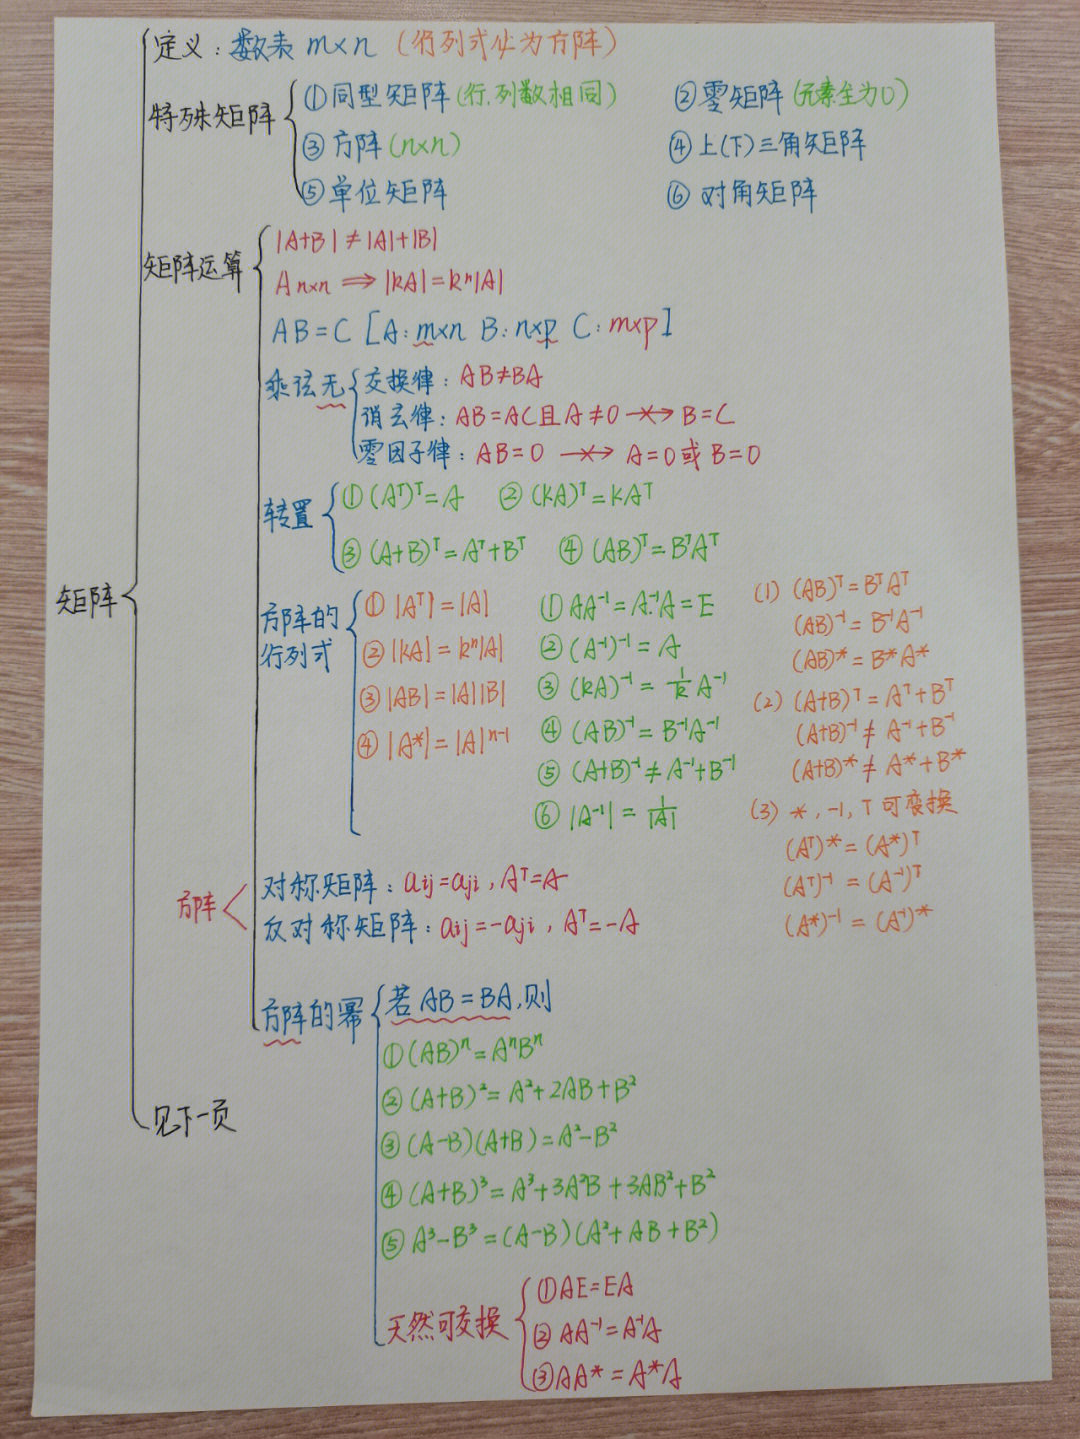 定义：数表 m×n（行列式必为方阵）
特殊矩阵
①同型矩阵(行.列数相同) ②零矩阵(元素全为0)
③方阵(n×n) ④上(下)三角矩阵
⑤单位矩阵 ⑥对角矩阵
矩阵运算
|A+B|≠|A|+|B|
An×n ⟹ |kA|=kⁿ|A|
AB=C [A:m×n B:n×p C:m×p]
乘法无
交换律：AB≠BA
消去律：AB=AC且A≠0 -×-> B=C
零因子律：AB=0 -×-> A=0或B=0
转置
①(Aᵀ)ᵀ=A ②(kA)ᵀ=kAᵀ
③(A+B)ᵀ=Aᵀ+Bᵀ ④(AB)ᵀ=BᵀAᵀ
矩阵
方阵的
行列式
①|Aᵀ|=|A|
②|kA|=kⁿ|A|
③|AB|=|A||B|
④|A*|=|A|ⁿ⁻¹
①AA⁻¹=A.⁻¹A=E
②(A⁻¹)⁻¹=A
③(kA)⁻¹=1/k A⁻¹
④(AB)⁻¹=B⁻¹A⁻¹
⑤(A+B)⁻¹≠A⁻¹+B⁻¹
⑥|A⁻¹|=1/|A|
(1) (AB)ᵀ=BᵀAᵀ
(AB)⁻¹=B⁻¹A⁻¹
(AB)*=B*A*
(2) (A+B)ᵀ=Aᵀ+Bᵀ
(A+B)⁻¹≠A⁻¹+B⁻¹
(A+B)*≠A*+B*
(3) *,-1,T可变换
(Aᵀ)*=(A*)ᵀ
(Aᵀ)⁻¹=(A⁻¹)ᵀ
(A*)⁻¹=(A⁻¹)*
方阵
对称矩阵：aij=aji,Aᵀ=A
反对称矩阵：aij=-aji,Aᵀ=-A
方阵的幂
若AB=BA,则
①(AB)ⁿ=AⁿBⁿ
②(A+B)²=A²+2AB+B²
③(A-B)(A+B)=A²-B²
④(A+B)³=A³+3A²B+3AB²+B²
⑤A³-B³=(A-B)(A²+AB+B²)
天然可交换
①AE=EA
②AA⁻¹=A⁻¹A
③AA*=A*A
见下一页